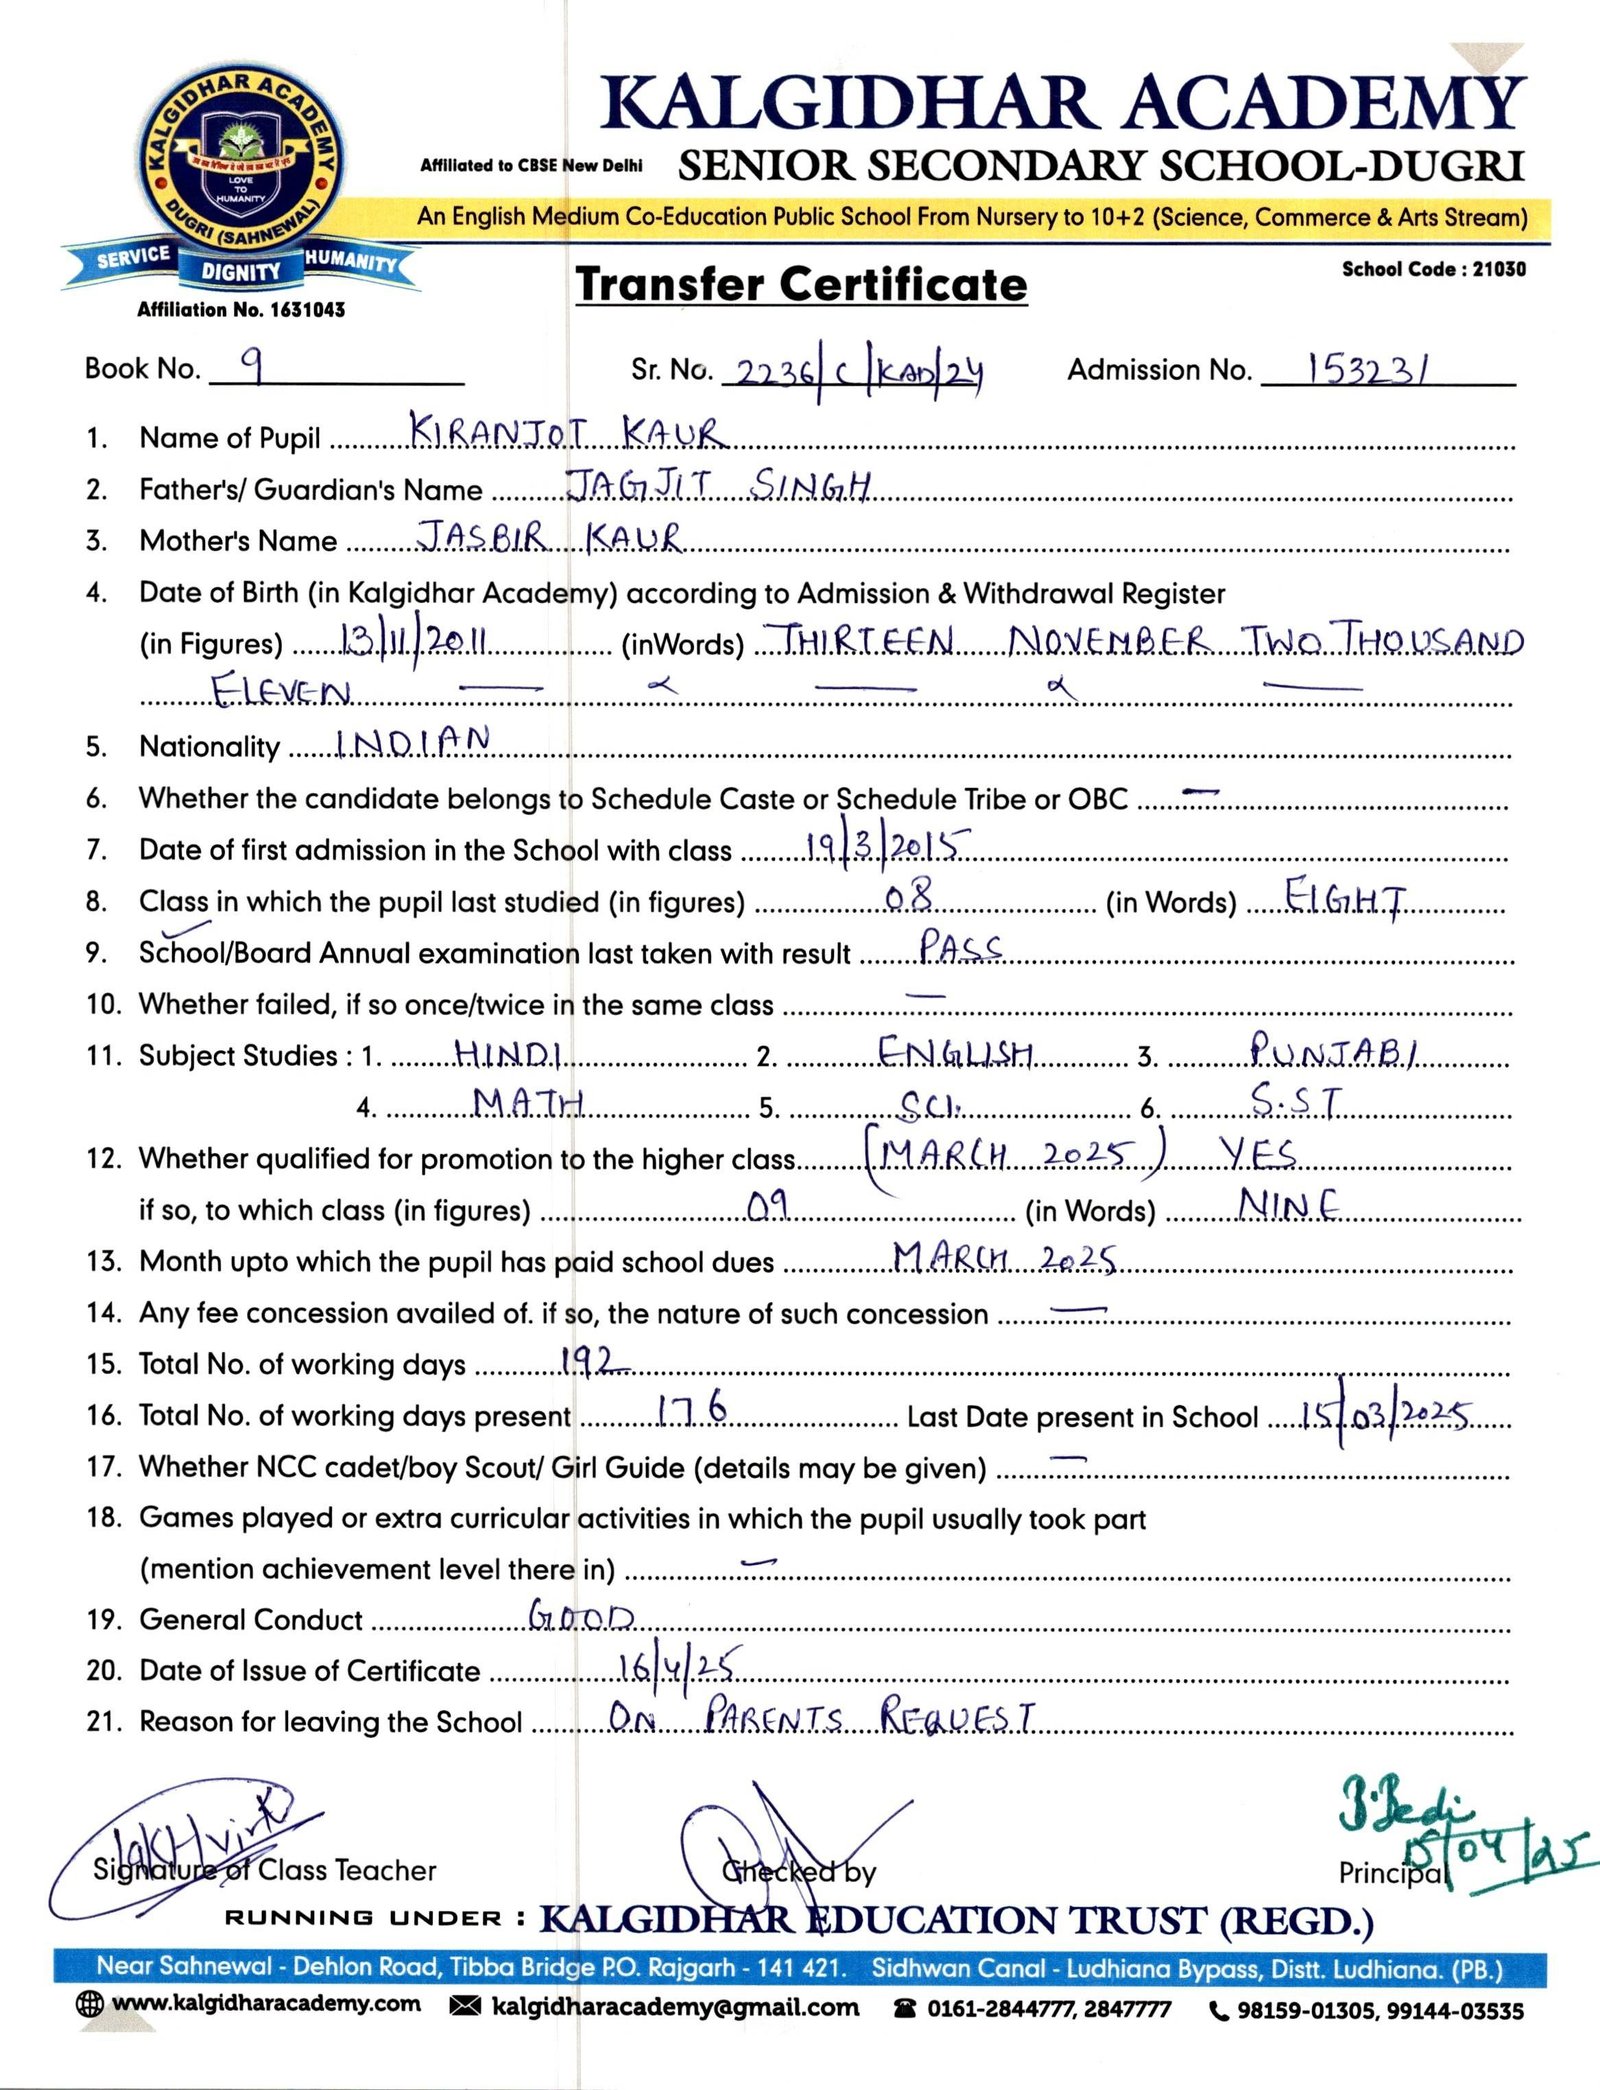 KALGIDHAR ACADEMY
DUGRI (SAHNEWAL)
LOVE
TO
HUMANITY
SERVICE DIGNITY HUMANITY
Affiliation No. 1631043
KALGIDHAR ACADEMY
Affiliated to CBSE New Delhi SENIOR SECONDARY SCHOOL-DUGRI
An English Medium Co-Education Public School From Nursery to 10+2 (Science, Commerce & Arts Stream)
Transfer Certificate
School Code : 21030
Book No. 9 Sr. No. 2236/C/KAD/24 Admission No. 153231
1. Name of Pupil KIRANJOT KAUR
2. Father's/ Guardian's Name JAGJIT SINGH
3. Mother's Name JASBIR KAUR
4. Date of Birth (in Kalgidhar Academy) according to Admission & Withdrawal Register
(in Figures) 13/11/2011 (inWords) THIRTEEN NOVEMBER TWO THOUSAND
ELEVEN
5. Nationality INDIAN
6. Whether the candidate belongs to Schedule Caste or Schedule Tribe or OBC —
7. Date of first admission in the School with class 19/3/2015
8. Class in which the pupil last studied (in figures) 08 (in Words) EIGHT
9. School/Board Annual examination last taken with result PASS
10. Whether failed, if so once/twice in the same class —
11. Subject Studies : 1. HINDI 2. ENGLISH 3. PUNJABI
4. MATH 5. SCI. 6. S.ST
12. Whether qualified for promotion to the higher class (MARCH 2025) YES
if so, to which class (in figures) 09 (in Words) NINE
13. Month upto which the pupil has paid school dues MARCH 2025
14. Any fee concession availed of. if so, the nature of such concession —
15. Total No. of working days 192
16. Total No. of working days present 176 Last Date present in School 15/03/2025
17. Whether NCC cadet/boy Scout/ Girl Guide (details may be given) —
18. Games played or extra curricular activities in which the pupil usually took part
(mention achievement level there in) —
19. General Conduct GOOD
20. Date of Issue of Certificate 16/4/25
21. Reason for leaving the School ON PARENTS REQUEST
B.Bedi
15/04/25
Signature of Class Teacher Checked by Principal
RUNNING UNDER : KALGIDHAR EDUCATION TRUST (REGD.)
Near Sahnewal - Dehlon Road, Tibba Bridge P.O. Rajgarh - 141 421. Sidhwan Canal - Ludhiana Bypass, Distt. Ludhiana. (PB.)
www.kalgidharacademy.com kalgidharacademy@gmail.com 0161-2844777, 2847777 98159-01305, 99144-03535